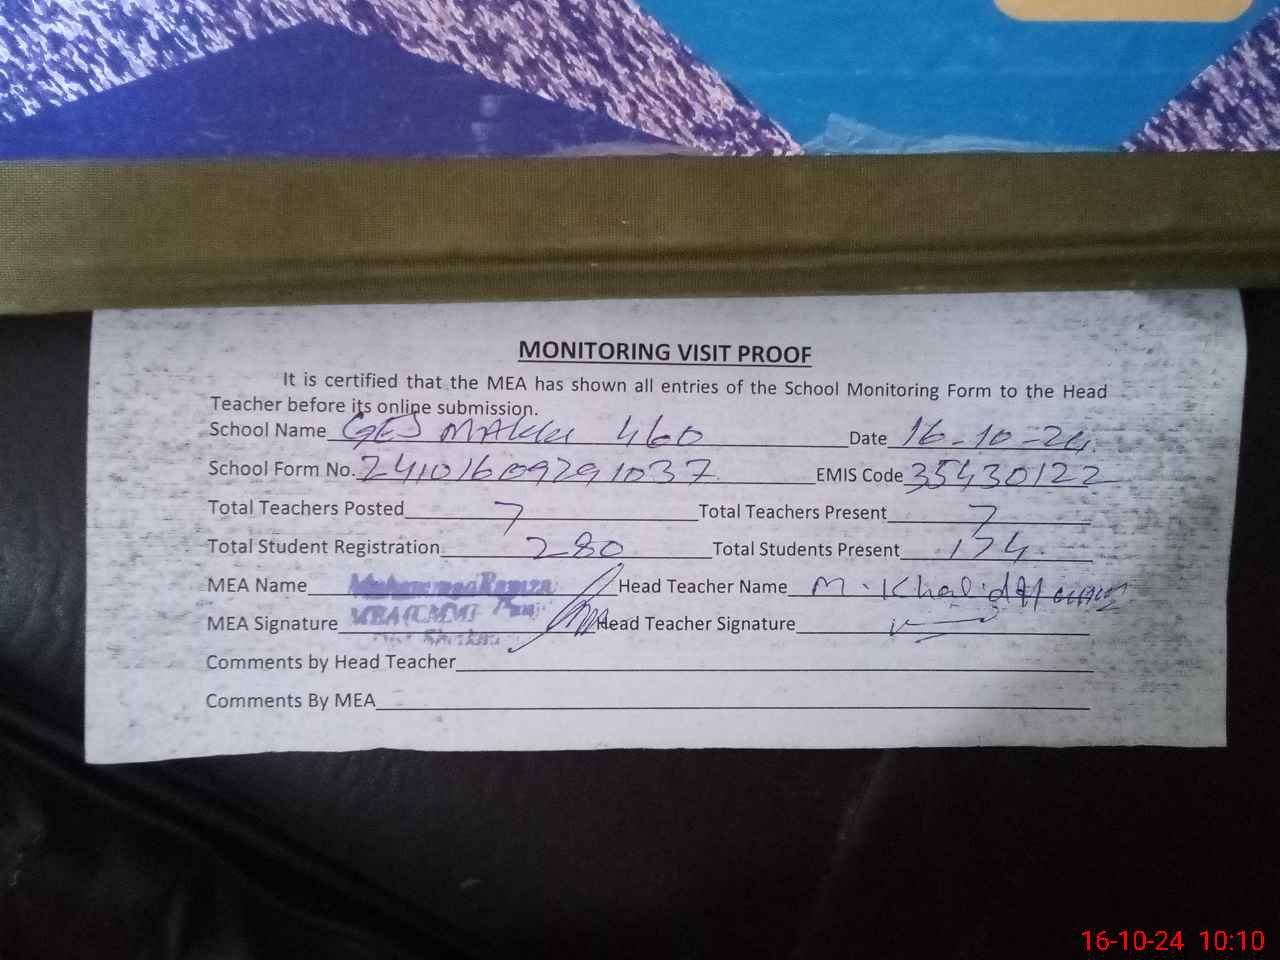 MONITORING VISIT PROOF
It is certified that the MEA has shown all entries of the School Monitoring Form to the Head
Teacher before its online submission.
School Name GES MAKKI 460 Date 16-10-24
School Form No. 24101609291037 EMIS Code 35430122
Total Teachers Posted 7 Total Teachers Present 7
Total Student Registration 280 Total Students Present 174
MEA Name Muhammad Head Teacher Name M. Khalid
MEA Signature MEA Head Teacher Signature
Comments by Head Teacher
Comments By MEA
16-10-24 10:10